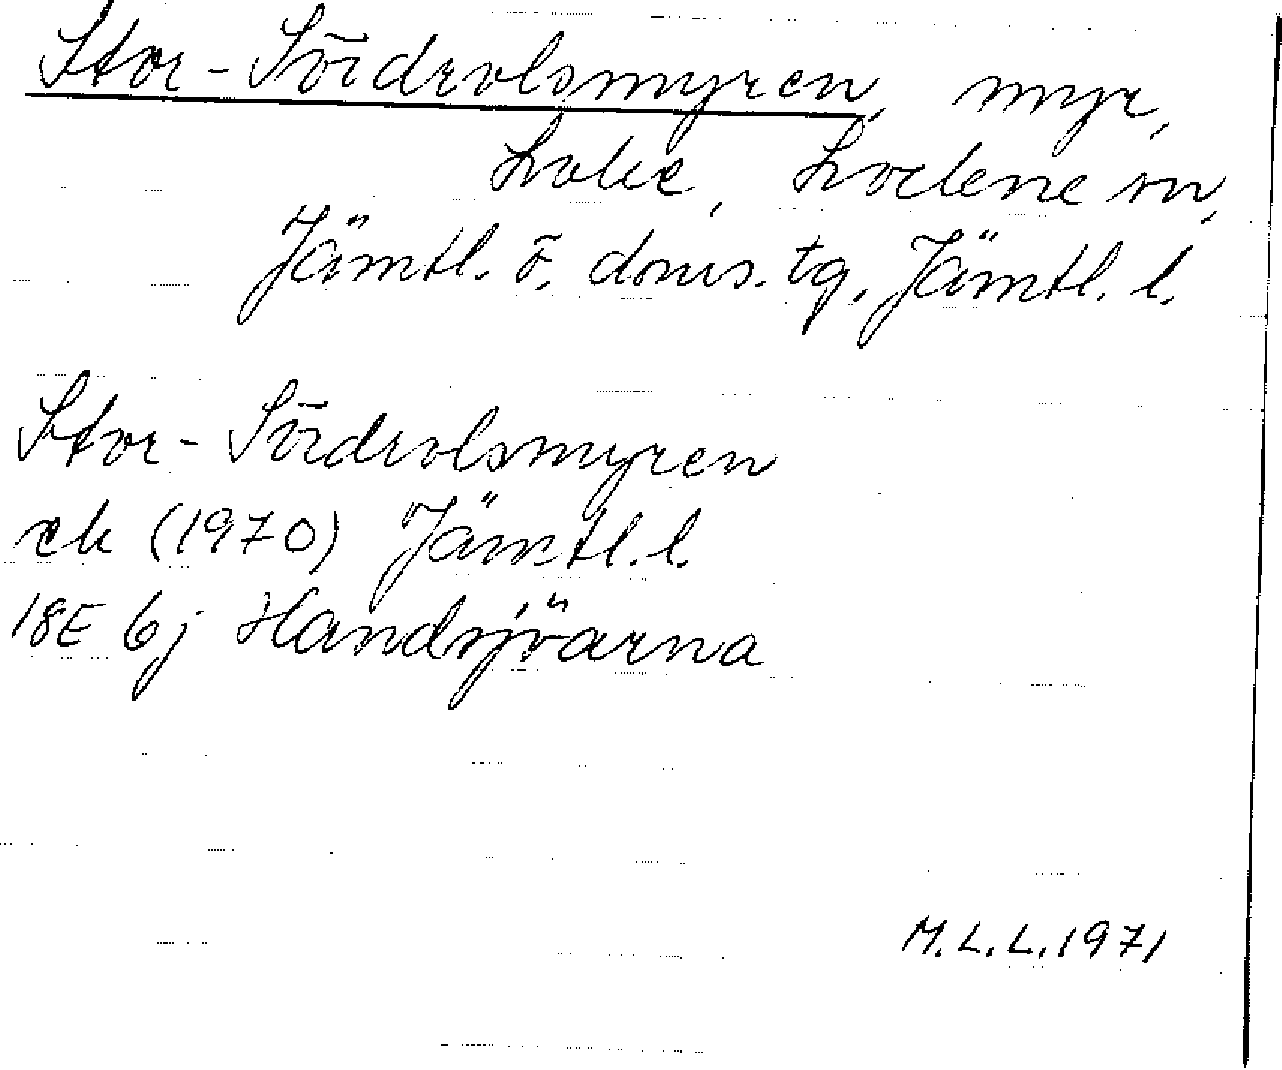 Stor-Sördrolsmyren, myr,
Lokne sn,
Jämtl. ö. doms. tg, Jämtl. l.
Stor-Sördrolsmyren
ek (1970) Jämtl. l.
18E 6j Handsjöarna
M.L.L. 1971